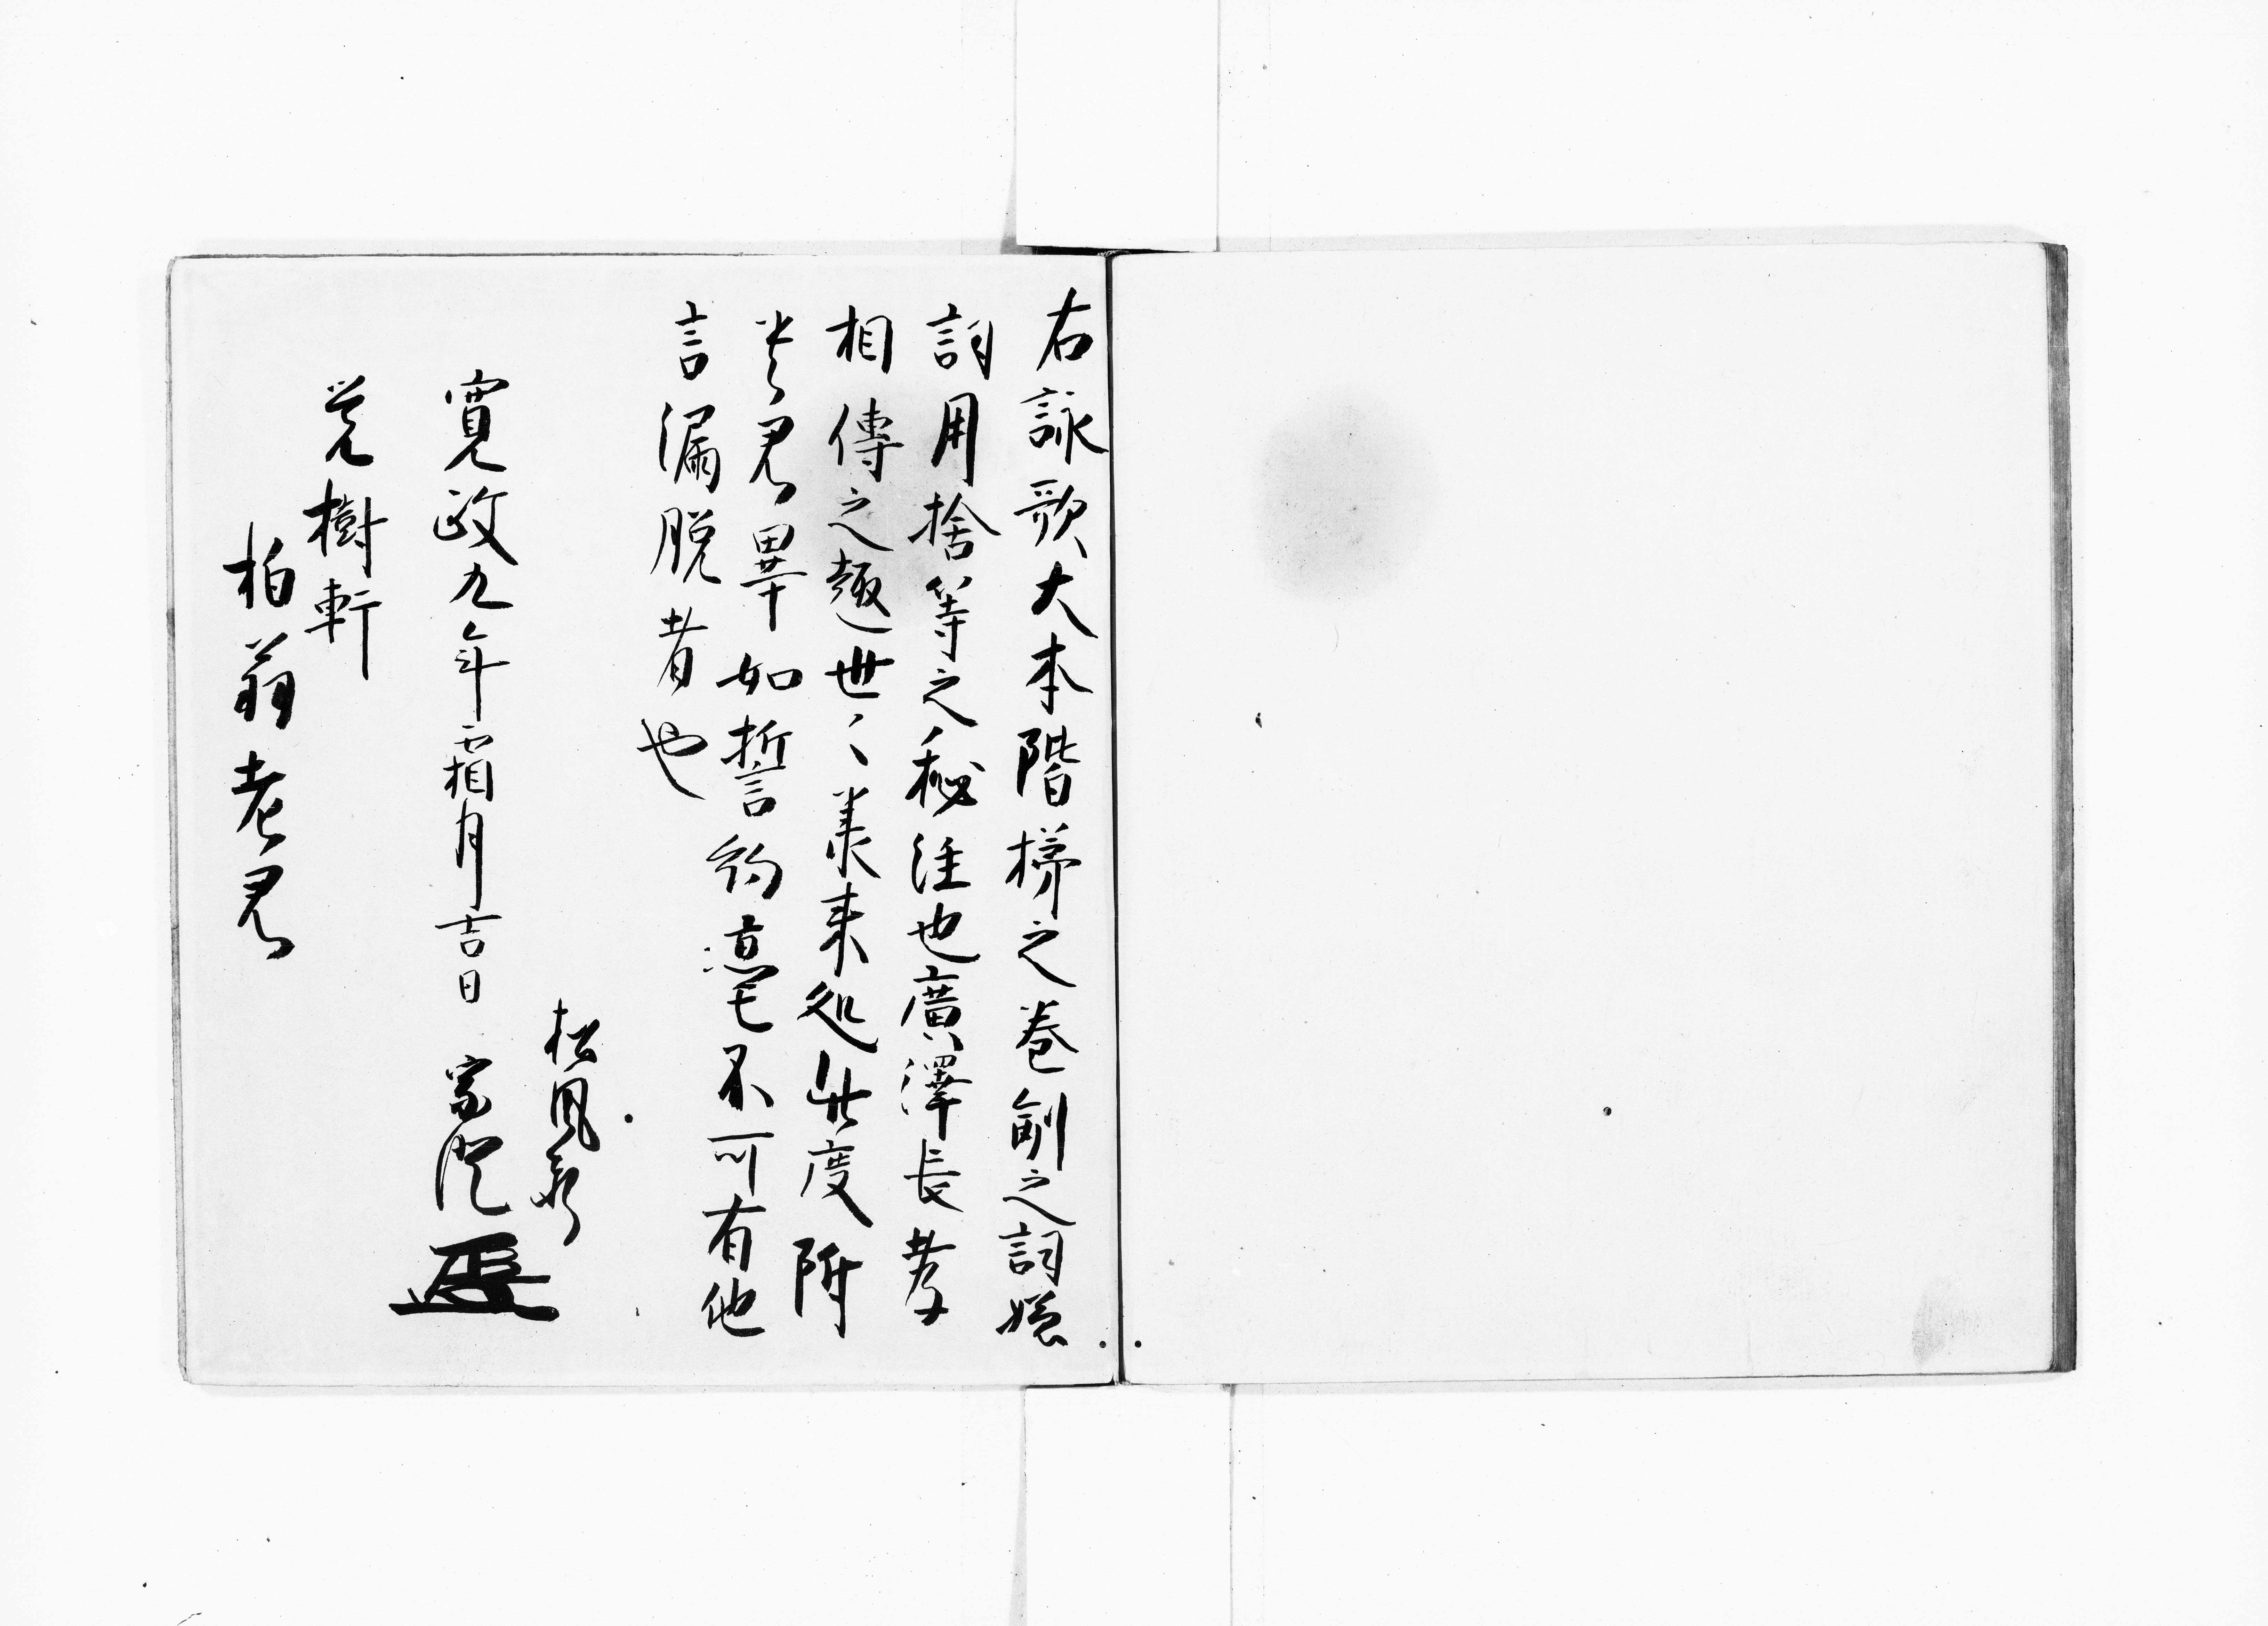 右詠歌大本階梯之巻制之詞嫌
詞用捨等之秘注也廣澤長孝
相傳之趣世〻業来処此度附
貴君畢如誓約毫不可有他
言漏脱者也
松風
寛政九年霜月吉日
覚樹軒
柏翁老君